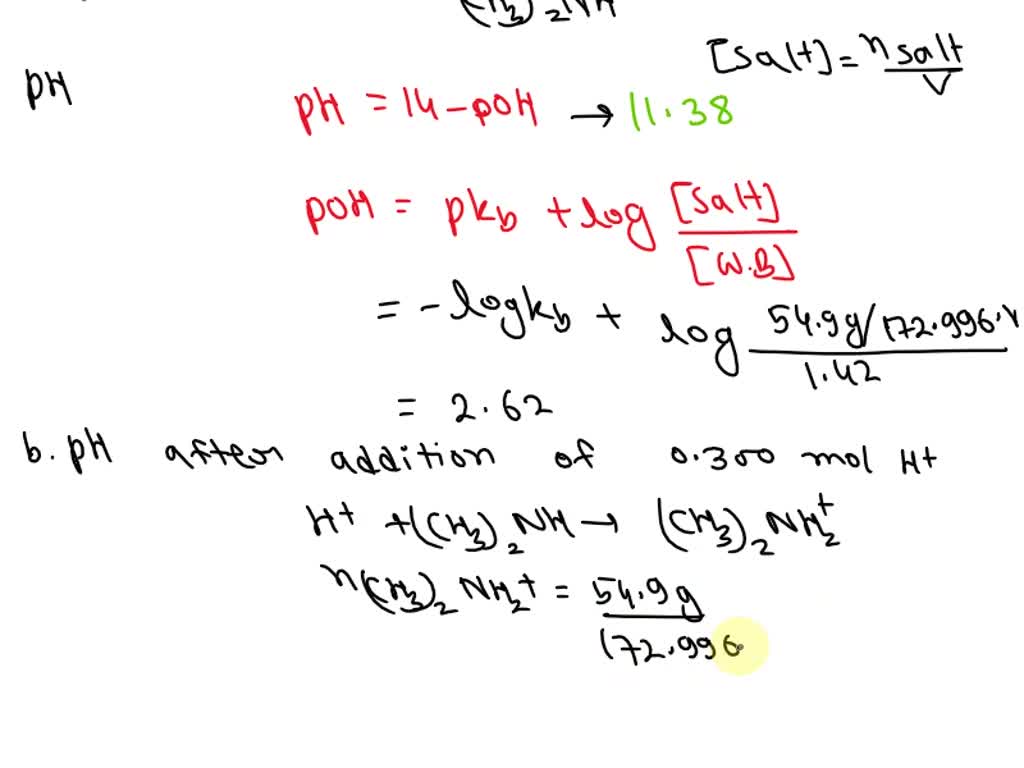 (CH3)2NH
[Salt] = nsalt/V
pH
pH = 14-pOH → 11.38
pOH = pkb + log [Salt]/[W.B]
= -logkb + log 54.9g/172.996.V/1.42
= 2.62
b. pH after addition of 0.300 mol H+
H+ + (CH3)2NH → (CH3)2NH2+
n(CH3)2NH2+ = 54.9g/172.996